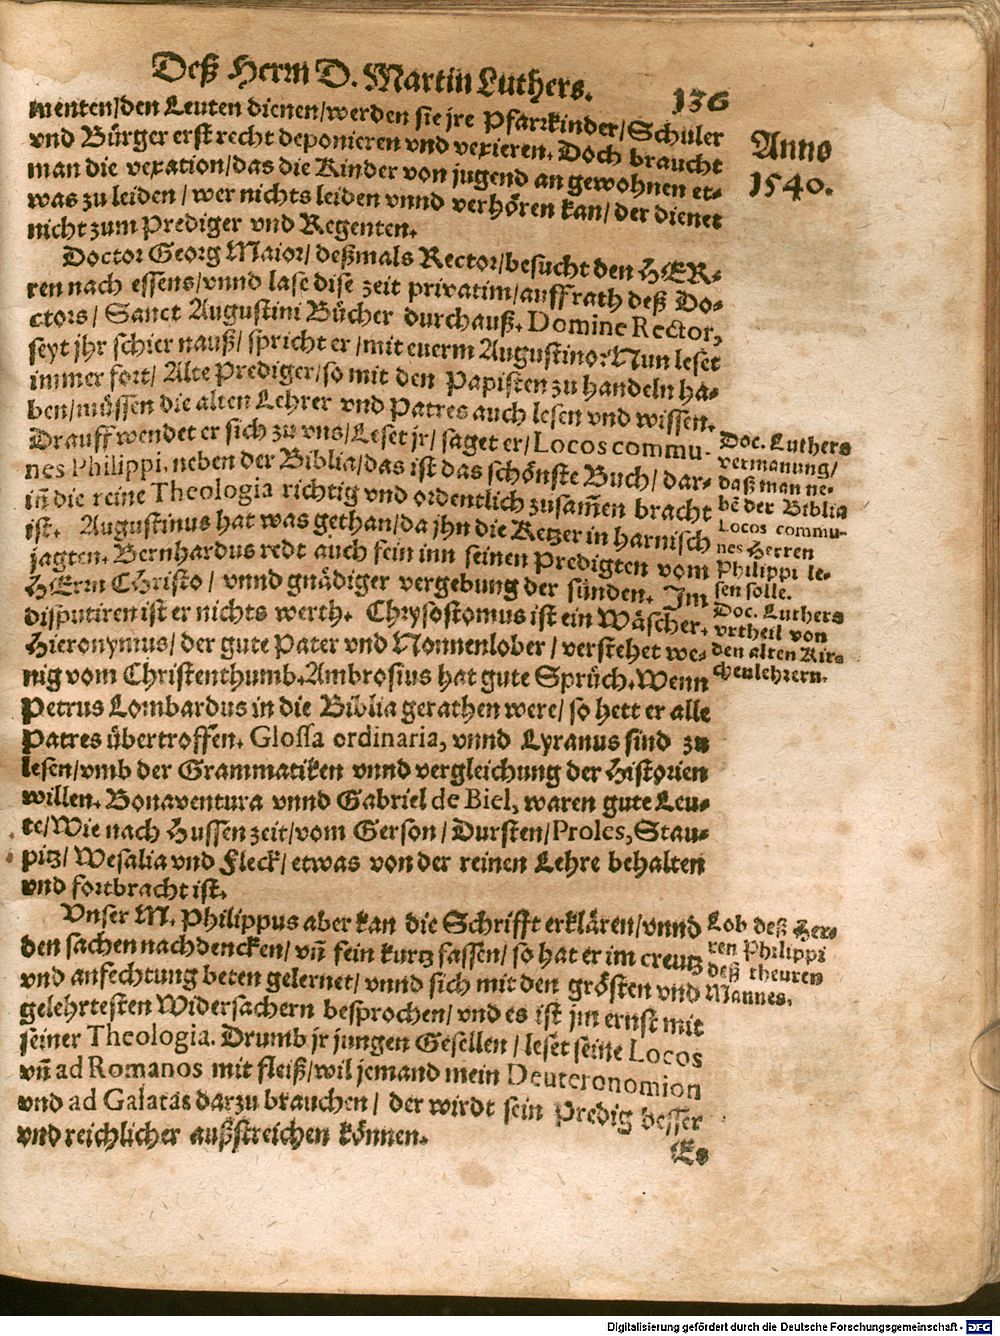 Deß Herrn D. Martin Luthers.
136
menten/den Leuten dienen/werden sie jre Pfarrkinder/Schuler
vnd Bürger erst recht deponieren vnd vexieren. Doch braucht
man die vexation/das die Kinder von jugend an gewohnen et-
was zu leiden/wer nichts leiden vnnd verhören kan/der dienet
nicht zum Prediger vnd Regenten.
Anno
1540.
Doctor Georg Maior/deßmals Rector/besucht den HER-
ren nach essens/vnnd lase dise zeit privatim/auff rath deß Do-
ctors/Sanct Augustini Bücher durchauß. Domine Rector,
seyt jhr schier nauß/spricht er/mit euerm Augustino? Nun leset
immer fort/Alte Prediger/so mit den Papisten zu handeln ha-
ben/müssen die alten Lehrer vnd Patres auch lesen vnd wissen.
Drauff wendet er sich zu vns/Leset jr/saget er/Locos commu-
nes Philippi, neben der Biblia/das ist das schönste Buch/dar-
iñ die reine Theologia richtig vnd ordentlich zusam̃en bracht
ist. Augustinus hat was gethan/da jhn die Ketzer in harnisch
jagten. Bernhardus redt auch fein inn seinen Predigten vom
HErrn CHristo/vnnd gnädiger vergebung der sünden. Im
disputiren ist er nichts werth. Chrysostomus ist ein Wäscher.
Hieronymus/der gute Pater vnd Nonnenlober/verstehet we-
nig vom Christenthumb. Ambrosius hat gute Sprüch. Wenn
Petrus Lombardus in die Biblia gerathen were/so hett er alle
Patres übertroffen. Glossa ordinaria, vnnd Lyranus sind zu
lesen/vmb der Grammatiken vnnd vergleichung der Historien
willen. Bonaventura vnnd Gabriel de Biel, waren gute Leu-
te/Wie nach Hussen zeit/vom Gerson/Dursten/Proles, Stau-
pitz/Wesalia vnd Fleck/etwas von der reinen Lehre behalten
vnd fortbracht ist.
Doc. Luthers
vermanung/
daß man ne-
bẽ der Biblia
Locos commu-
nes Herren
Philippi le-
sen solle.
Doc. Luthers
vrtheil von
den alten Kir-
chenlehrern.
Vnser M. Philippus aber kan die Schrifft erklären/vnnd
den sachen nachdencken/vñ fein kurtz fassen/so hat er im creutz
vnd anfechtung beten gelernet/vnnd sich mit den grösten vnd
gelehrtesten Widersachern besprochen/vnd es ist jm ernst mit
seiner Theologia. Drumb jr jungen Gesellen/leset seine Locos
vñ ad Romanos mit fleiß/wil jemand mein Deuteronomion
vnd ad Galatas darzu brauchen/der wirdt sein Predig besser
vnd reichlicher außstreichen können.
Lob deß Her-
ren Philippi
deß theuren
Mannes.
Es
Digitalisierung gefördert durch die Deutsche Forschungsgemeinschaft - DFG